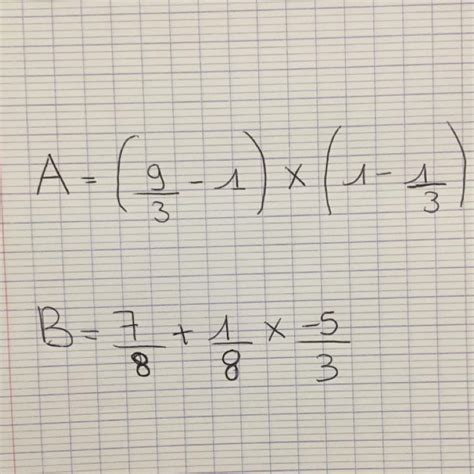 A = (9/3 - 1) × (1 - 1/3)
B = 7/8 + 1/8 × -5/3